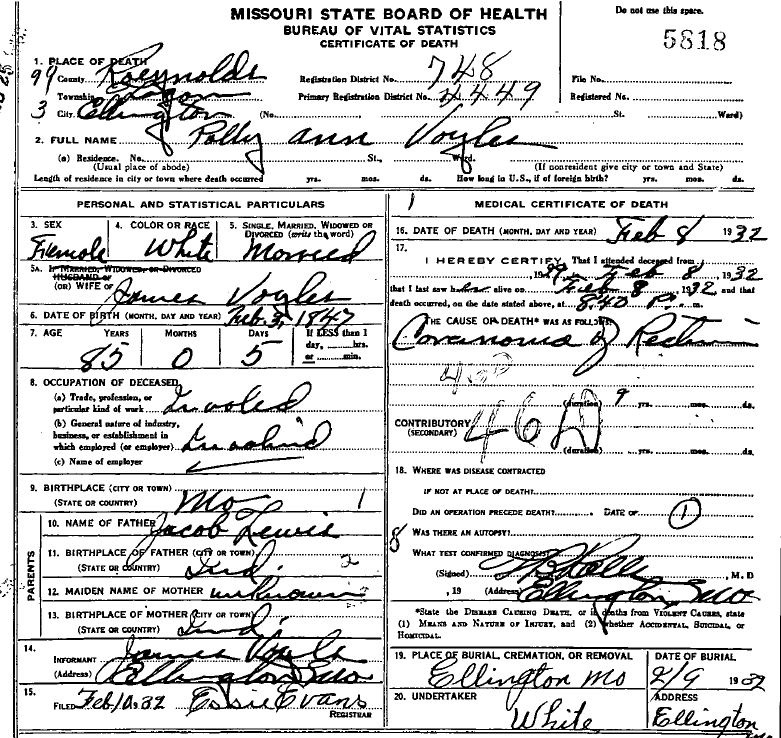 MISSOURI STATE BOARD OF HEALTH
BUREAU OF VITAL STATISTICS
CERTIFICATE OF DEATH
Do not use this space.
5818
1. PLACE OF DEATH
99 County Reynolds Registration District No. 748 File No.
Township Logan Primary Registration District No. 4449 Registered No.
3 City Ellington (No. St. Ward)
2. FULL NAME Polly ann Voyles
(a) Residence. No. St., Ward.
(Usual place of abode) (If nonresident give city or town and State)
Length of residence in city or town where death occurred yrs. mos. ds. How long in U.S., if of foreign birth? yrs. mos. ds.
PERSONAL AND STATISTICAL PARTICULARS
3. SEX 4. COLOR OR RACE 5. SINGLE, MARRIED, WIDOWED OR DIVORCED (write the word)
Female White Married
5A. IF MARRIED, WIDOWED, OR DIVORCED
HUSBAND OF
(OR) WIFE OF James Voyles
6. DATE OF BIRTH (MONTH, DAY AND YEAR) Feb. 3, 1847
7. AGE YEARS MONTHS DAYS If LESS than 1 day, hrs. or min.
85 0 5
8. OCCUPATION OF DECEASED
(a) Trade, profession, or particular kind of work
(b) General nature of industry, business, or establishment in which employed (or employer)
(c) Name of employer
9. BIRTHPLACE (CITY OR TOWN)
(STATE OR COUNTRY) Mo 1
PARENTS
10. NAME OF FATHER Jacob Lewis
11. BIRTHPLACE OF FATHER (CITY OR TOWN)
(STATE OR COUNTRY) Ind. 2
12. MAIDEN NAME OF MOTHER unknown
13. BIRTHPLACE OF MOTHER (CITY OR TOWN)
(STATE OR COUNTRY) Ind.
14. INFORMANT James Voyles
(Address) Ellington Mo
15. FILED Feb 10, 32 Essie Evans
REGISTRAR
1 MEDICAL CERTIFICATE OF DEATH
16. DATE OF DEATH (MONTH, DAY AND YEAR) Feb 8 1932
17.
I HEREBY CERTIFY, That I attended deceased from
, 19 Feb 8, 1932
that I last saw her alive on Feb 8, 1932, and that
death occurred, on the date stated above, at 8:40 P. m.
THE CAUSE OF DEATH* WAS AS FOLLOWS:
Carcinoma of Rectum
(duration) 9 yrs. mos. ds.
CONTRIBUTORY
(SECONDARY)
46
(duration) yrs. mos. ds.
18. WHERE WAS DISEASE CONTRACTED
IF NOT AT PLACE OF DEATH?
DID AN OPERATION PRECEDE DEATH? DATE OF 1
8 WAS THERE AN AUTOPSY?
WHAT TEST CONFIRMED DIAGNOSIS?
(Signed) , M. D
, 19 (Address) Ellington, Mo
*State the DISEASE CAUSING DEATH, or in deaths from VIOLENT CAUSES, state
(1) MEANS AND NATURE OF INJURY, and (2) whether ACCIDENTAL, SUICIDAL, or
HOMICIDAL.
19. PLACE OF BURIAL, CREMATION, OR REMOVAL DATE OF BURIAL
Ellington Mo 2/9 1932
20. UNDERTAKER ADDRESS
White Ellington
Mo